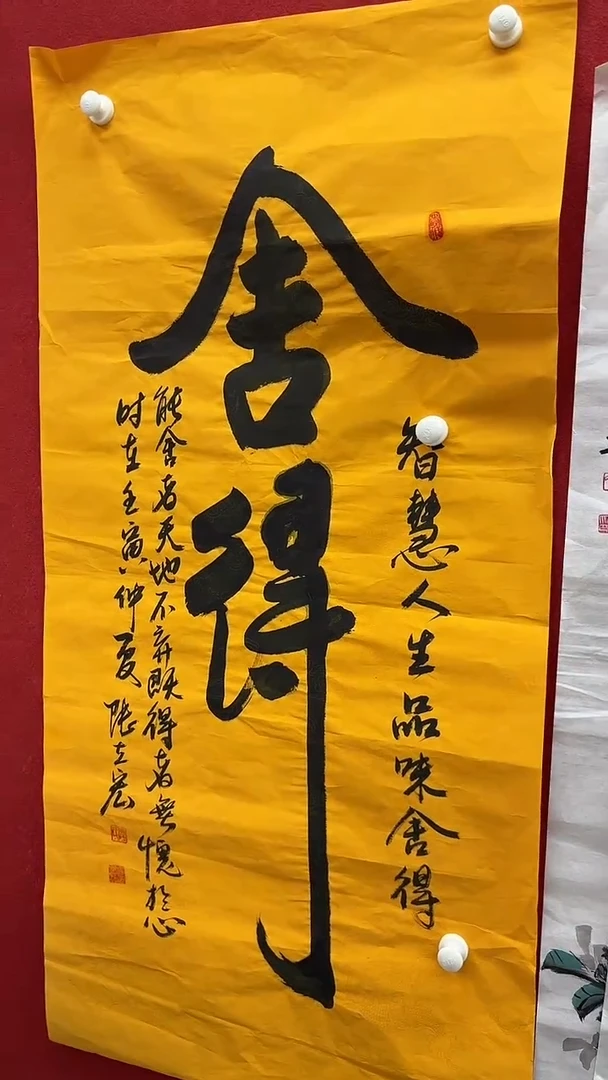 舍得
智慧人生品味舍得
能舍者天地不弃既得者無愧於心
时在壬寅仲夏張立宏